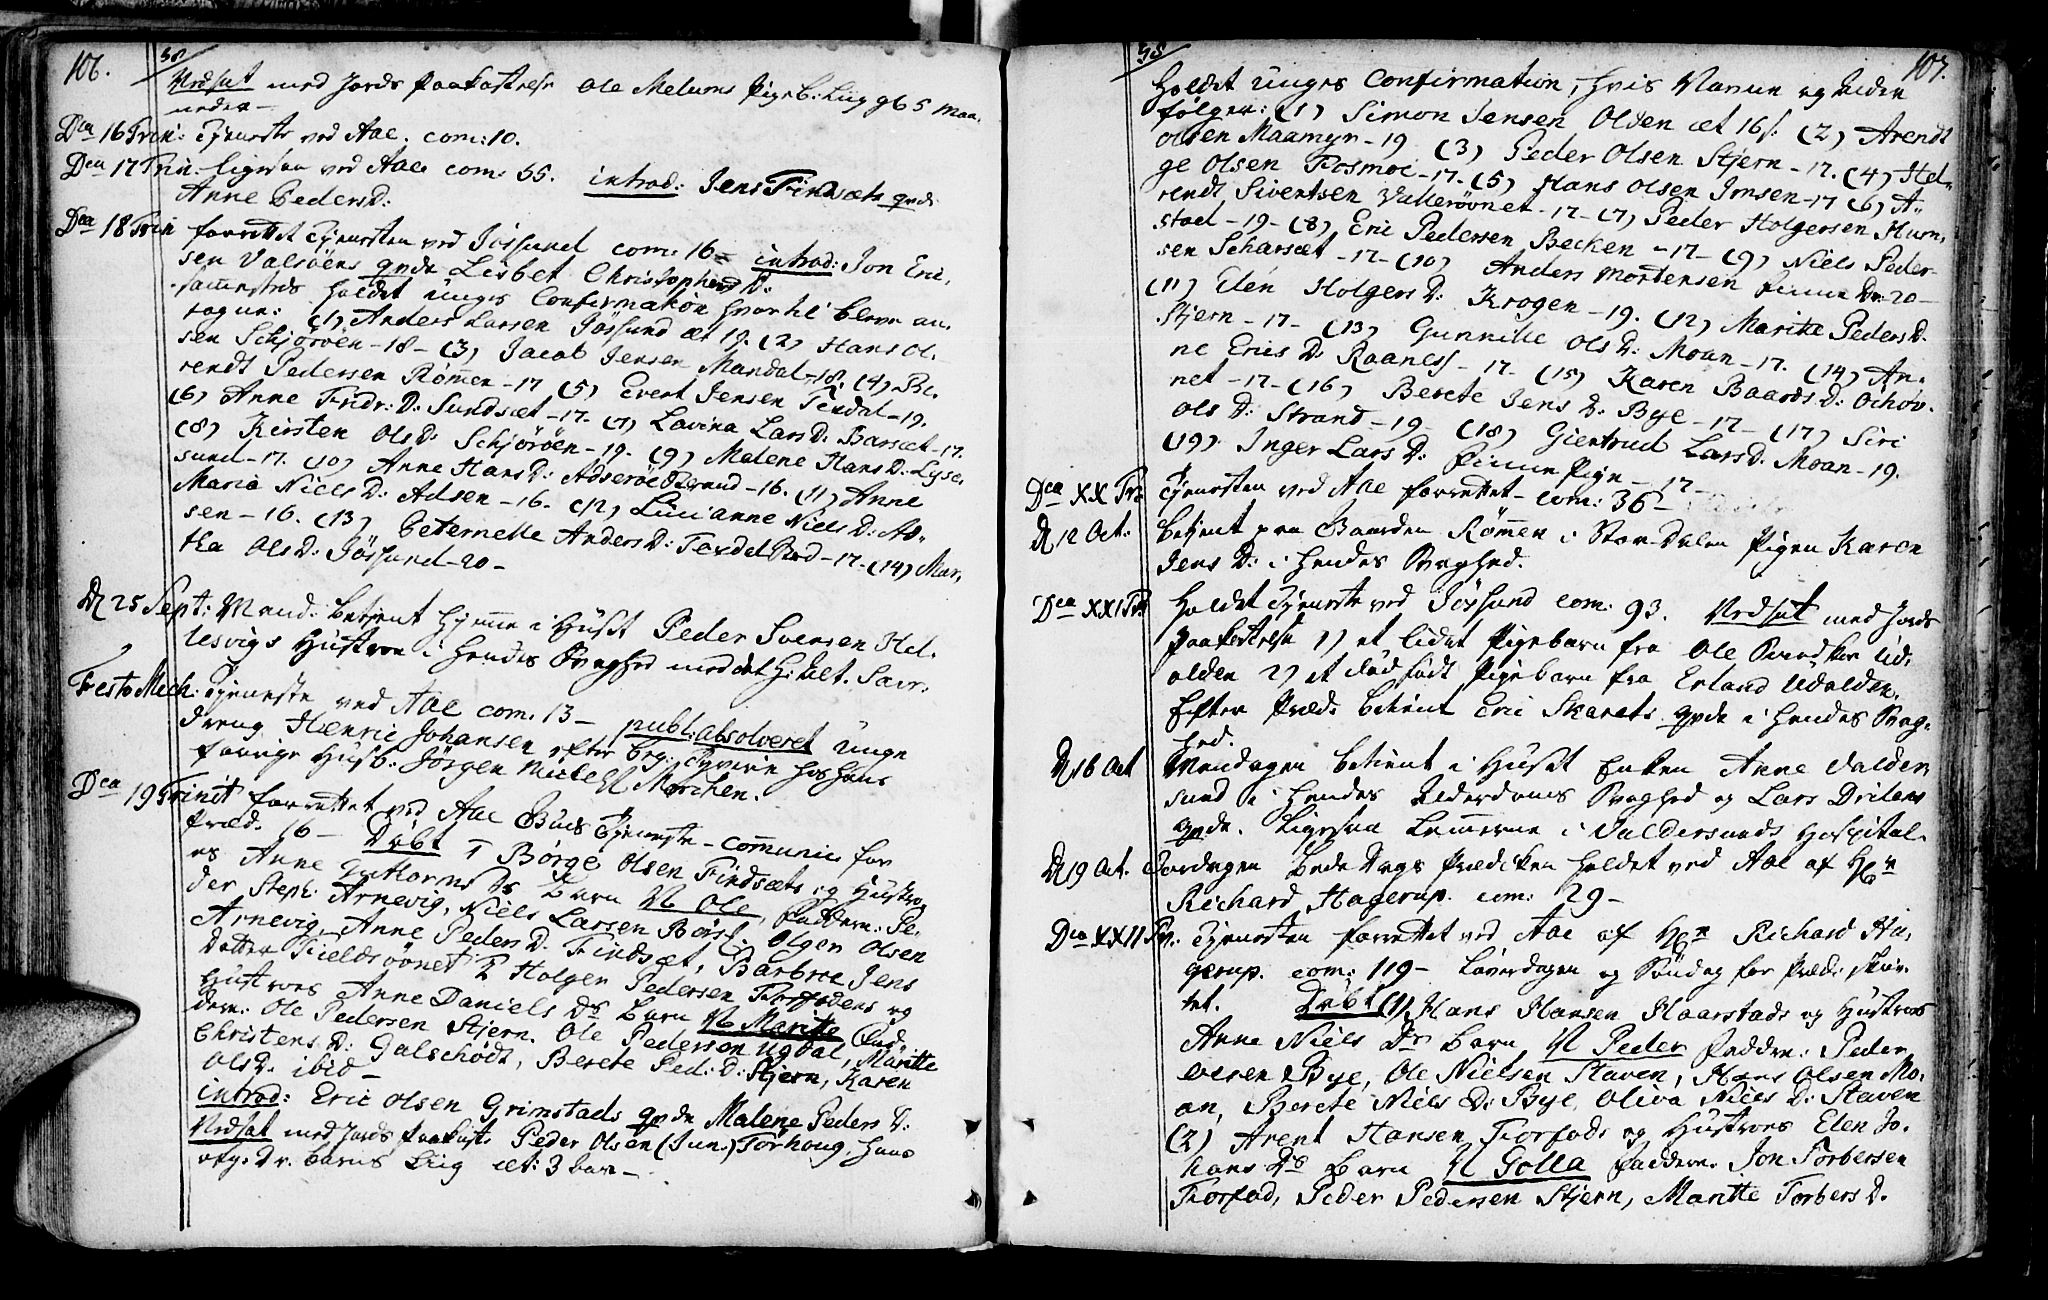 106.
58
Vedsat med Jords Paakastelse Ole Melums Pigeb: Liig g: 5 Maa,
neder -
Dca 16 Trin: Tjeneste ved Aae. com: 10.
Dca 17 Trin. ligesaa ved Aae com: 55. introd: Jens Findsæts qvde
Anne PedersD:
Dca 18 Trin forrettet Tjenesten ved Jössund com: 16 - introd: Jon Eric,
sen Valsöens qvde Lisbet ChristophersD:
sammesteds holdet unges Confirmation hvortil bleve an,
tagne: (1) Anders Larsen Jössund æt 19. (2) Hans Ol.
sen Schjöröen - 18 - (3) Jacob Jensen Mandal - 18. (4) Be.
rendt Pedersen Römmen - 17 (5) Evert Jensen Texdal - 19.
(6) Anne Fridr: D: Sundsæt - 17. (7) Lovina LarsD: Barsæt - 17.
(8) Kirsten OlsD: Schjöröen - 19. (9) Malene HansD: Lyse,
sund - 17. (10) Anne HansD: Adseröe Strand - 16. (11) Anne
Maria NielsD: Adsen - 16. (12) Lucianne NielsD: Ad,
sen - 16. (13) Peternelle AndersD: Texdel Stad - 17 - (14) Mar,
tha OlsD: Jössund - 20 -
D 25 Sept: Mand: betjent hjemme i Huset Peder Svensen Hel.
lesvigs Hustroe i hendes Svaghed med det H: Alt. Sacr.
Festo Mich: Tjeneste ved Aae com: 13 - publ: absolveret unge
dreng Henric Johansen efter beg: Tyverie hos hans
forrige Husb: Jörgen Michel Mörchen.
Dca 19 Trinit forrettet ved Aae Guds Tjeneste - communic for
Præd. 16 - Döbt 1 Börge Olsen Findsæts og Hustro,
es Anne Guthorms Ds Barn N Ole, Faddere: Pe,
der Steph: Arnevig, Niels Larsen Börsl. Olger Olsen
Arnevig, Anne PedersD. Findsæt, Barbroe Jens
Datter Fieldsöönet 2 Holger Pedersen Fiorfodens og
Hustroes Anne Daniels Ds Barn N Maritte Fad,
dere: Ole Pedersen Stjern. Ole Pedersen Ugdal, Maritte
ChristensD: Galschödt, Berete Ped: D: Stjern, Karen
OlsD. ibid -
introd: Eric Olsen Grimstads qvde Malene PedersD:
Vedsat med Jords Paakast: Peder Olsen (Jun.) Törhoug, hans
Barns Liig æt: 3 -

58
107.
holdet unges Confirmation, hvis Navne og Alder
fölger: (1) Simon Jensen Olden æt 16 1/2 (2) Arendt
Olsen Maamyr - 19 (3) Peder Olsen Stjern - 17. (4) Hel,
ge Olsen Fosmoe - 17 - (5) Hans Olsen Imsen - 17 (6) A,
rendt Siventsen Vallersöönet - 17 - (7) Peder Holgersen Hum,
stad - 19 - (8) Eric Pedersen Becken - 17 - (9) Niels Peder
sen Scharsæt - 17 - (10) Anders Mortensen Finne Dr: 20 -
(11) Elen HolgersD: Krogen - 19. (12) Maritte PedersD.
Stjern - 17 - (13) Gunnille OlsD: Moan - 17. (14) An,
ne EricsD: Raaness - 17 - (15) Karen BaardsD: Öchov.
net - 17 - (16) Berete JensD: Bye - 17 - (17) Siri
OlsD: Strand - 19 - (18) Giertrud LarsD: Moan - 19.
(19). Inger LarsD: Finne Pige - 17 -
Dca XX Tr: Tjenesten ved Aae forrettet - com: 36 -
D 12 Oct: betjent paa Gaarden Römmen i Stor-Dalen Pigen Karen
JensD: i hendes Svaghed.
Dca XXI Tr: holdet Tjeneste ved Jössund com: 93. Vedsat med Jords
Paakastelse 1) et lidet Pigebarn fra Ole Ud,
alden 2) et död födt Pigebarn fra Erland Udalden.
Efter Præd: betient Eric Skarets qvde i hendes Svag,
hed.
D 16 Oct Mandagen betient i Huset Enken Anne Valder,
sund i hendes Alderdoms Svaghed og Lars Drilens
qvde. Ligesaa Lemmerne i Valdersunds Hospital.
D 19 Oct. Torsdagen bede Dags Prædiken holdet ved Aae af Hr
Richard Hagerup. com: 29 -
Dca XXII Tr: Tjenesten forrettet ved Aae af Hr Richard Ha,
gerup. com: 119 - Löverdagen og Söndag for Præd: skrif,
tet. Döbt (1) Hans Hansen Haarstads og Hustroes
Anne Niels Drs Barn N Peder Faddere: Peder
Olesen Bye, Ole Nielsen Staven, Hans Olsen Mo,
an, Berete NielsD: Bye, Oliva NielsD: Staven
(2) Arent Hansen Fiorfods og Hustroes Elen Jo,
hans Ds Barn N Golla Faddere: Jon Torbersen
Fiorfod, Peder Pedersen Stjern, Maritte TorbersD.